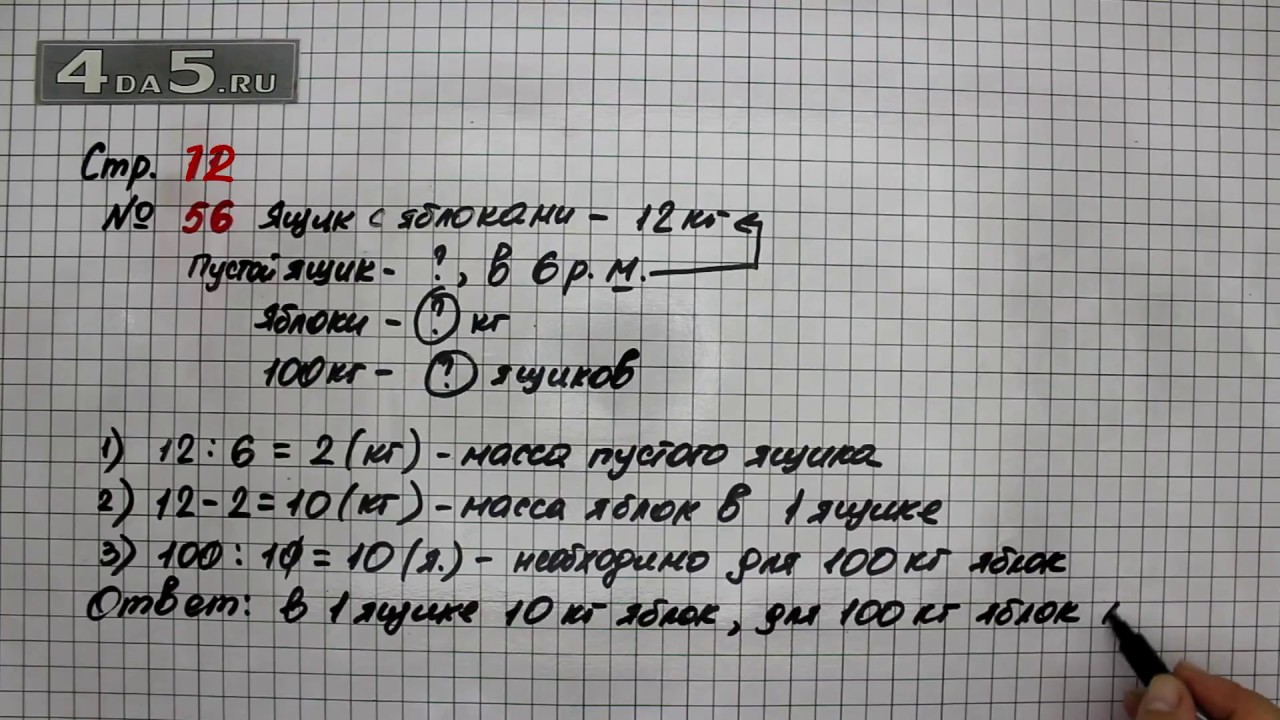 4DA5.RU
Стр. 12
№ 56 Ящик с яблоками - 12 кг
Пустой ящик - ?, в 6 р. м.
Яблоки - ? кг
100 кг - ? ящиков
1) 12 : 6 = 2 (кг) - масса пустого ящика
2) 12 - 2 = 10 (кг) - масса яблок в 1 ящике
3) 100 : 10 = 10 (я.) - необходимо для 100 кг яблок
Ответ: в 1 ящике 10 кг яблок, для 100 кг яблок